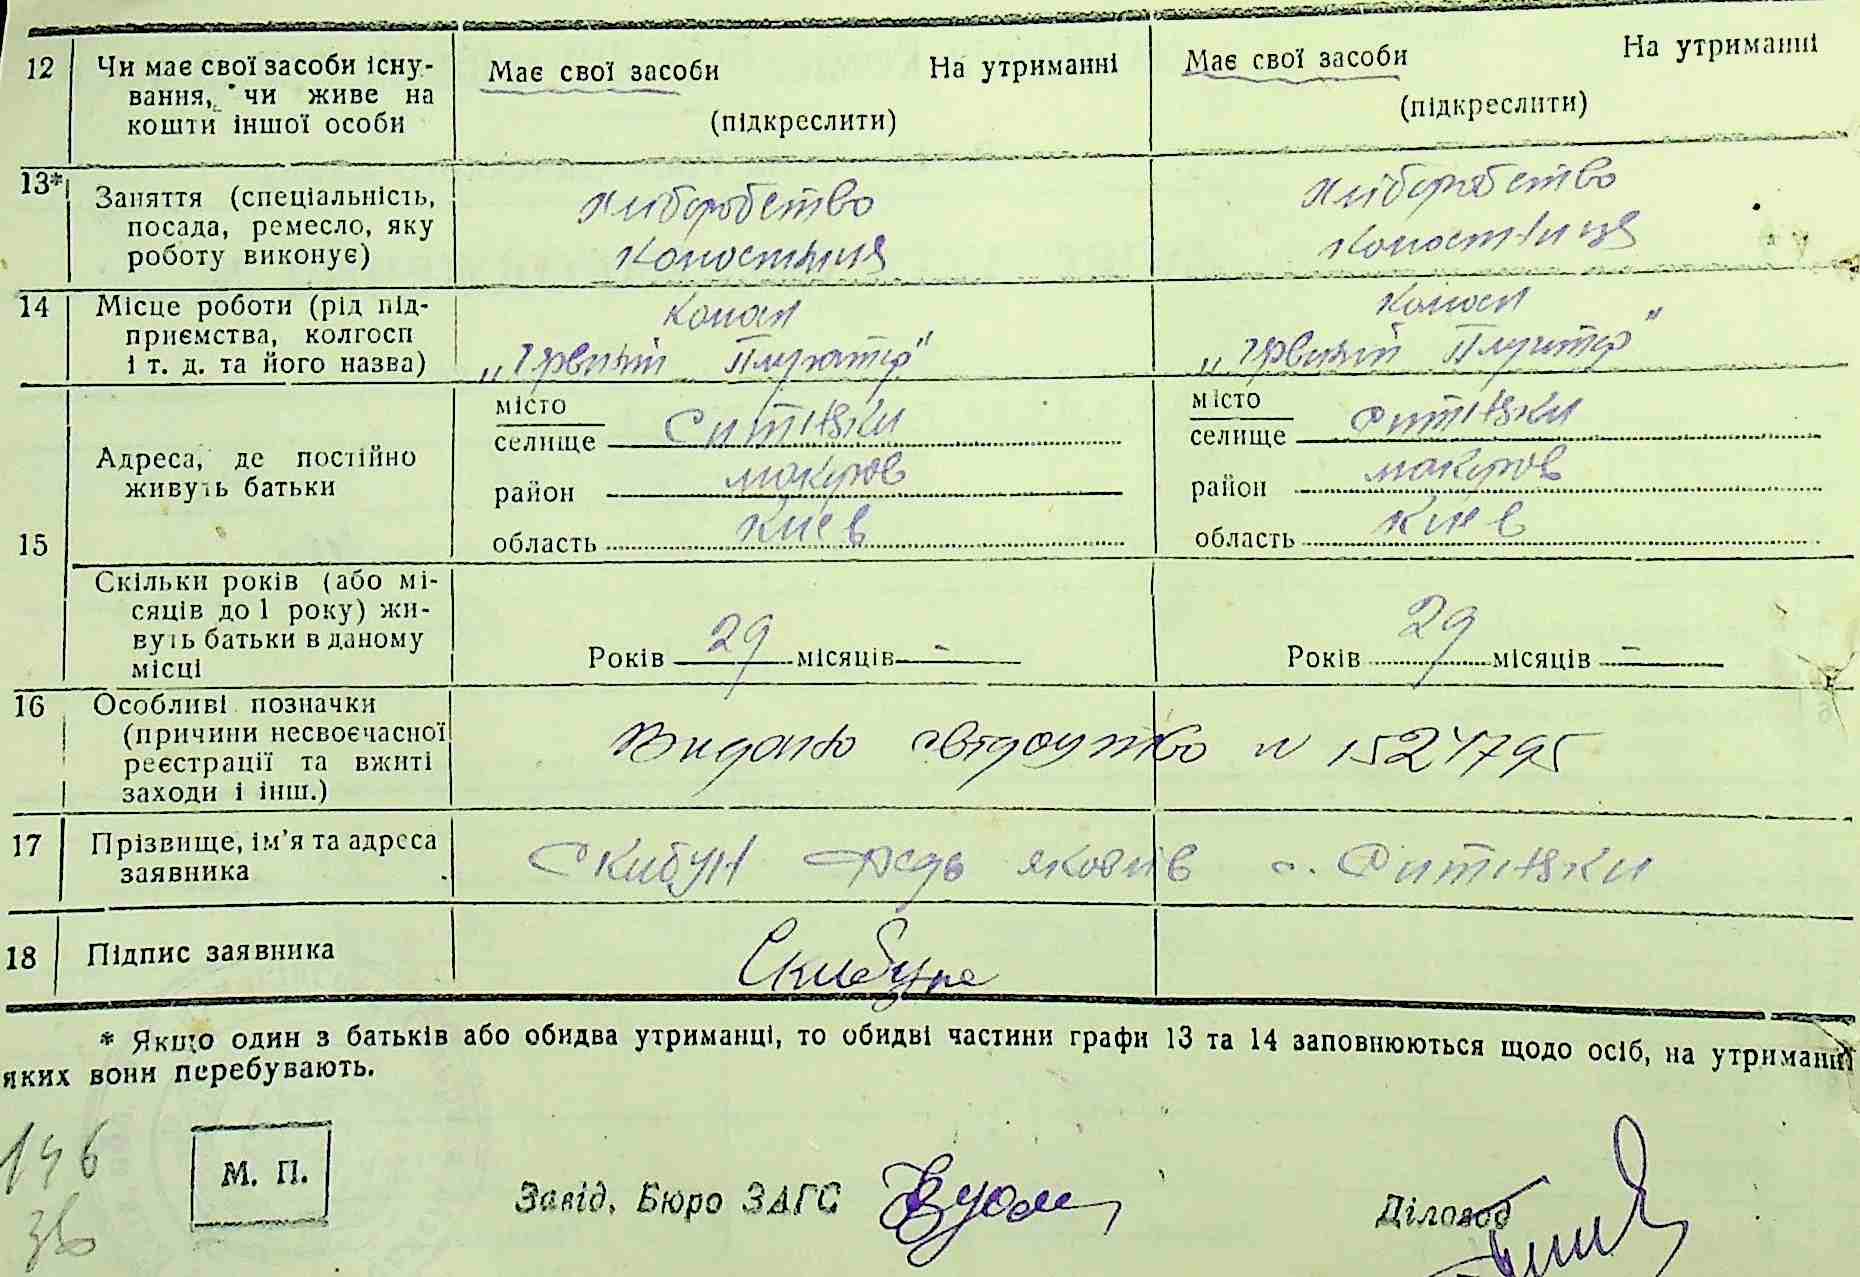 12 Чи має свої засоби існу-
вання, чи живе на
кошти іншої особи
Має свої засоби На утриманні
(підкреслити)
Має свої засоби На утриманні
(підкреслити)
13* Заняття (спеціальність,
посада, ремесло, яку
роботу виконує)
Хлиборобство
Хлиборобство
14 Місце роботи (рід під-
приємства, колгосп
і т. д. та його назва)
15 Адреса, де постійно
живуть батьки
місто
селище Ситняки
район макаров
область Киев
місто
селище Ситняки
район макаров
область Киев
Скільки років (або мі-
сяців до 1 року) жи-
вуть батьки в даному
місці
Років 29 місяців -
Років 29 місяців -
16 Особливі позначки
(причини несвоєчасної
реєстрації та вжиті
заходи і інш.)
Видано свідоцтво N
17 Прізвище, ім'я та адреса
заявника
Скибун с. Ситняки
18 Підпис заявника
Скибун
* Якщо один з батьків або обидва утриманці, то обидві частини графи 13 та 14 заповнюються щодо осіб, на утриманні
яких вони перебувають.
146
зв
М. П.
Завід. Бюро ЗАГС
Діловод